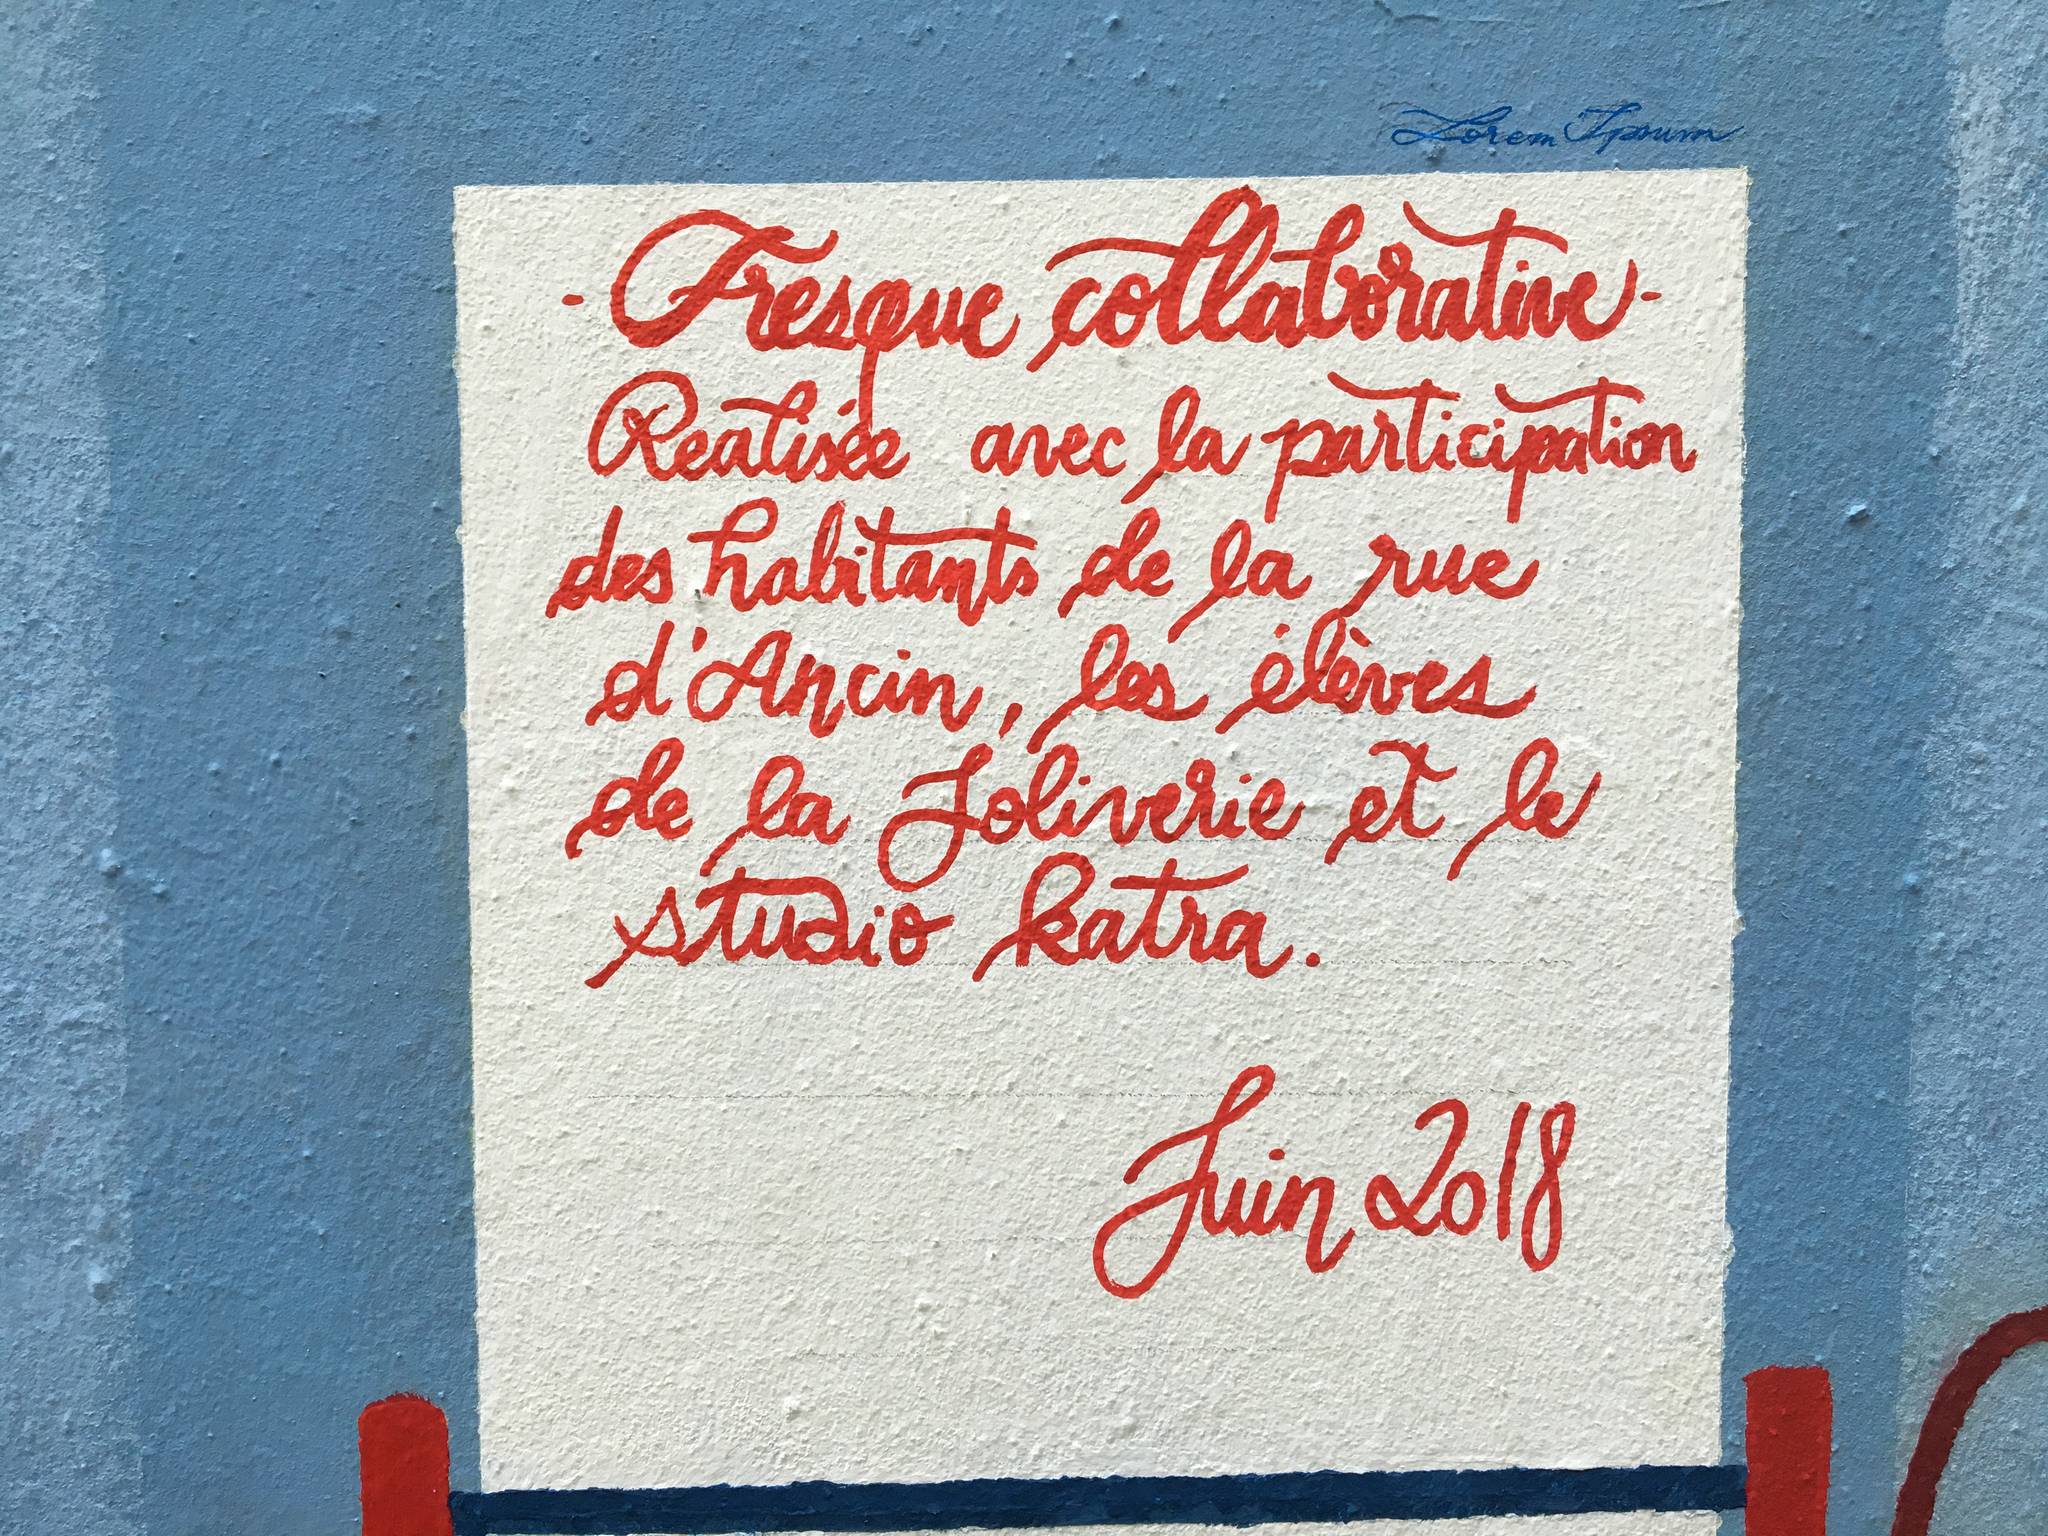 Lorem Ipsum
- Fresque collaborative -
Réalisée avec la participation
des habitants de la rue
d'Ancin, les élèves
de la Joliverie et le
studio katra.
Juin 2018